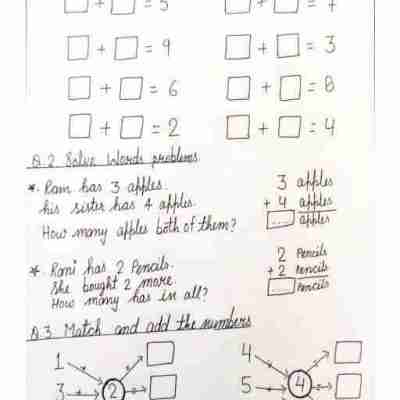 □ + □ = 5
□ + □ = 7
□ + □ = 9
□ + □ = 3
□ + □ = 6
□ + □ = 8
□ + □ = 2
□ + □ = 4
Q.2 Solve Words problems
*. Ram has 3 apples.
his sister has 4 apples.
How many apples both of them?
3 apples
+ 4 apples
... apples
*. Rani has 2 Pencils.
She bought 2 more.
How many has in all?
2 Pencils
+ 2 Pencils
Pencils
Q.3 Match and add the numbers
1
3
2
4
5
4